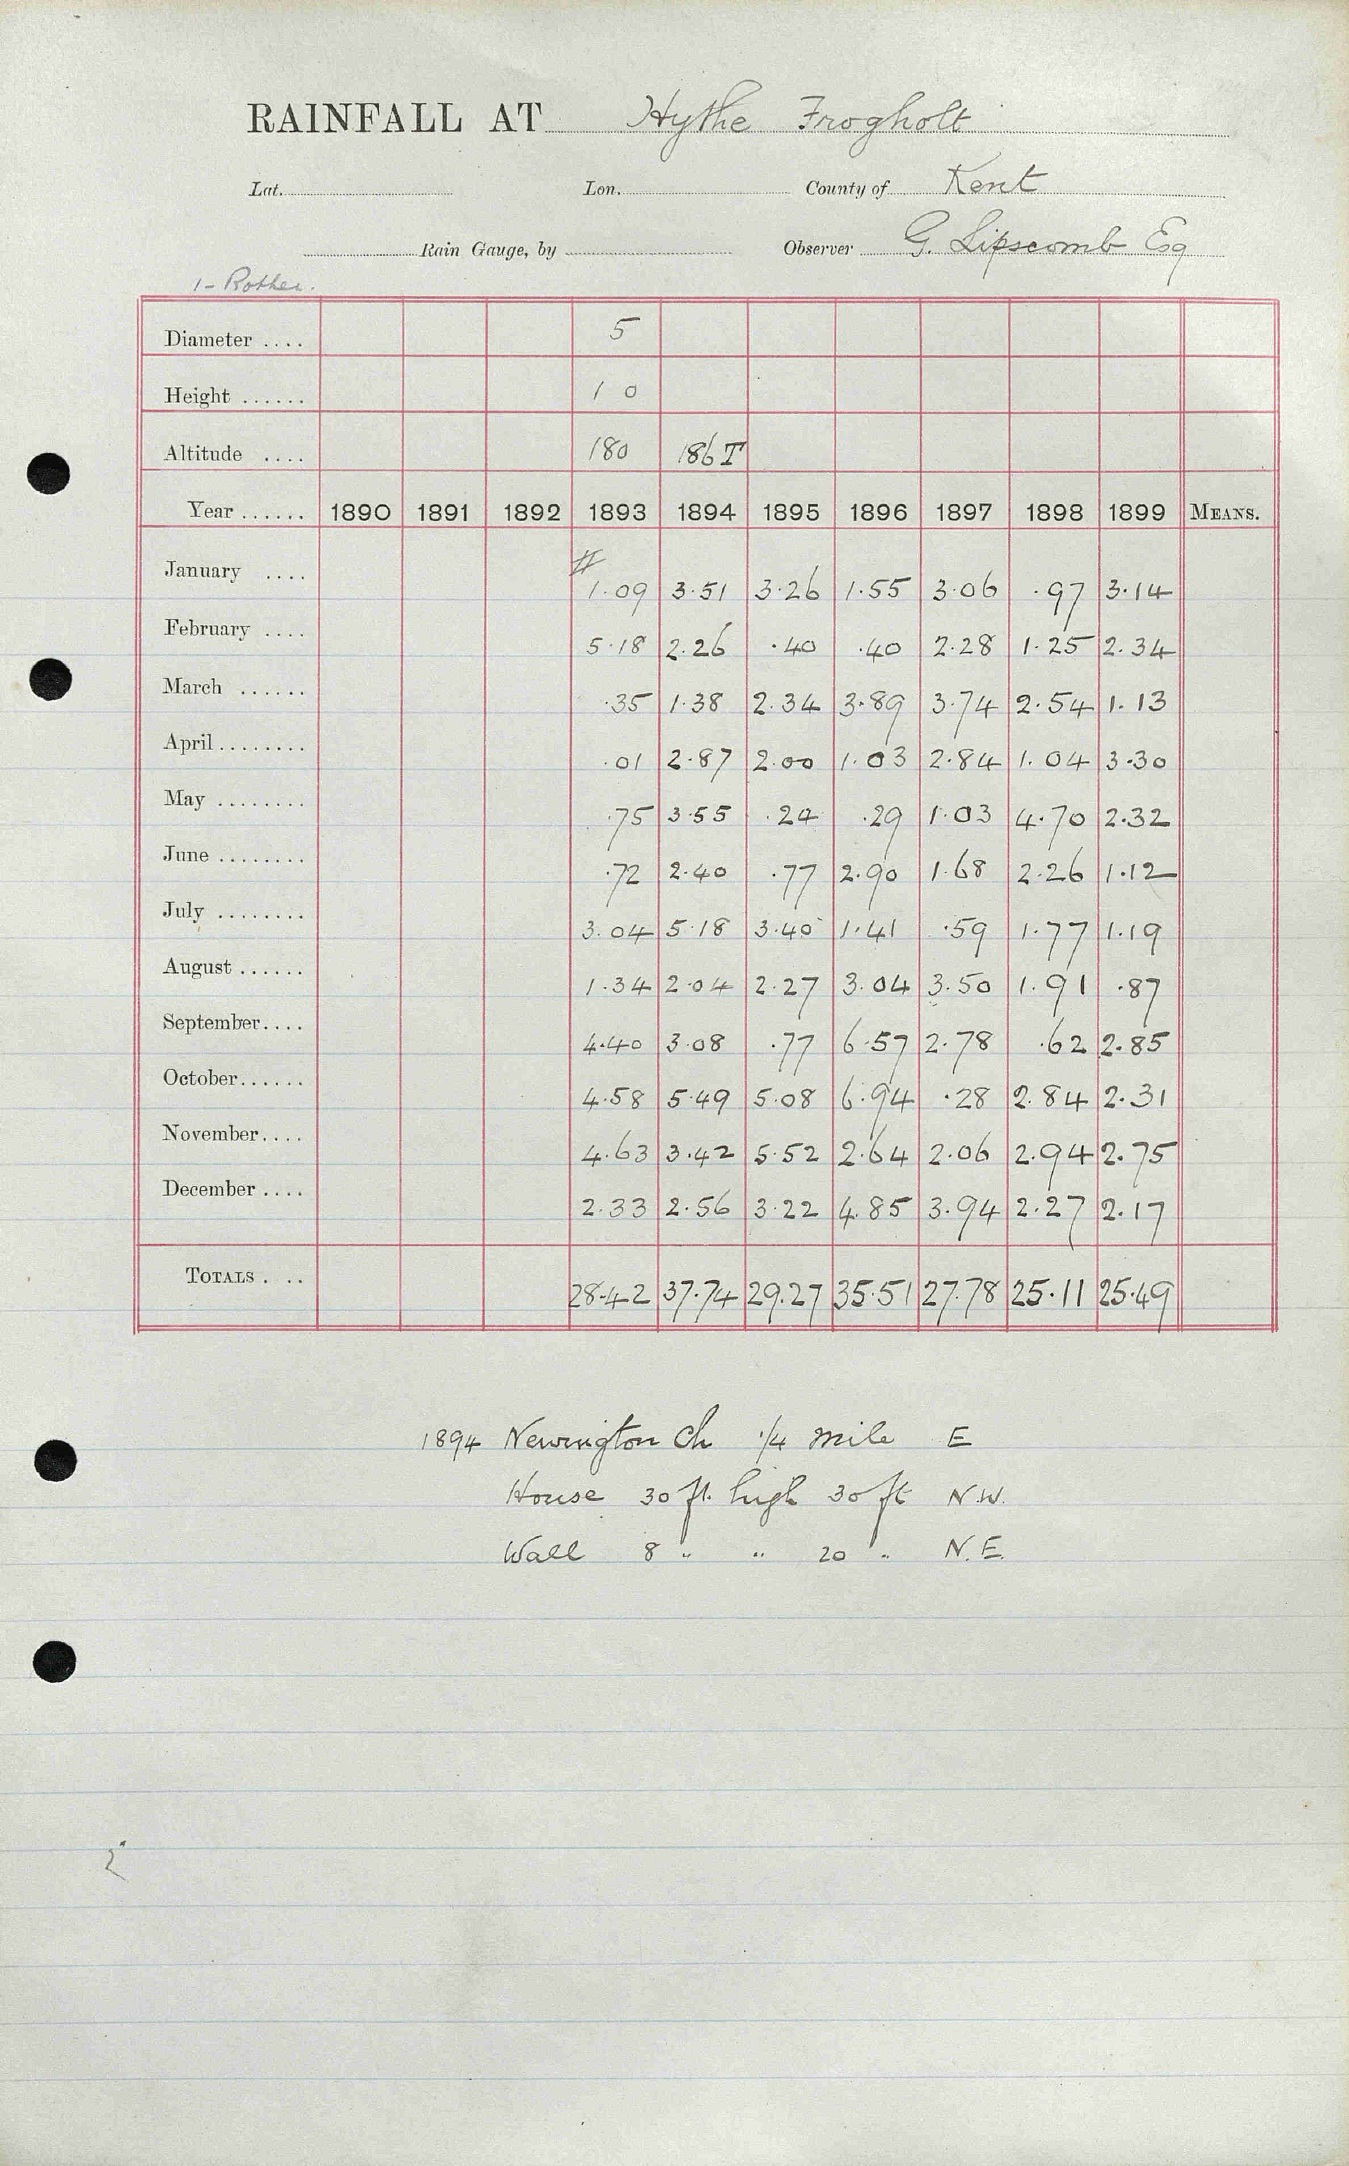 RAINFALL AT Hythe Frogholt
Lat. Lon. County of Kent
Rain Gauge, by Observer G. Lipscomb Esq
1- Rother.
Diameter .... 5
Height ...... 1 0
Altitude .... 180 186 T
Year ...... 1890 1891 1892 1893 1894 1895 1896 1897 1898 1899 MEANS.
#
January .... 1.09 3.51 3.26 1.55 3.06 .97 3.14
February .... 5.18 2.26 .40 .40 2.28 1.25 2.34
March ...... .35 1.38 2.34 3.89 3.74 2.54 1.13
April ........ .01 2.87 2.00 1.03 2.84 1.04 3.30
May ........ .75 3.55 .24 .29 1.03 4.70 2.32
June ........ .72 2.40 .77 2.90 1.68 2.26 1.12
July ........ 3.04 5.18 3.40 1.41 .59 1.77 1.19
August ...... 1.34 2.04 2.27 3.04 3.50 1.91 .87
September.... 4.40 3.08 .77 6.57 2.78 .62 2.85
October...... 4.58 5.49 5.08 6.94 .28 2.84 2.31
November.... 4.63 3.42 5.52 2.64 2.06 2.94 2.75
December .... 2.33 2.56 3.22 4.85 3.94 2.27 2.17
TOTALS . .. 28.42 37.74 29.27 35.51 27.78 25.11 25.49
1894 Newington Ch 1/4 mile E
House 30 ft. high 30 ft N.W.
Wall 8 " " 20 " N.E.